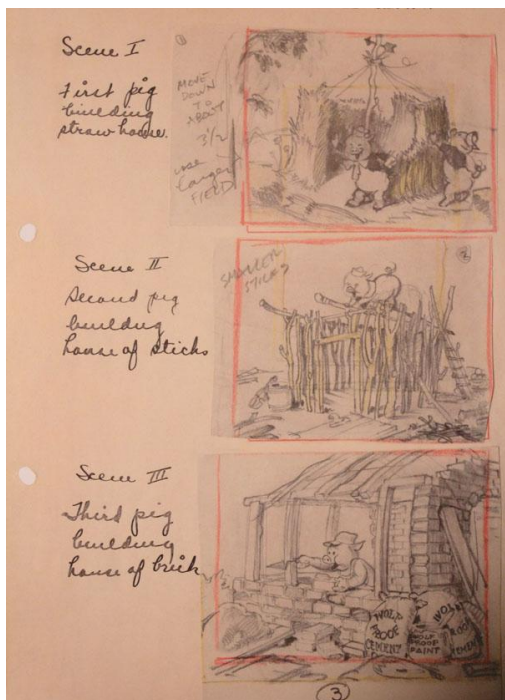 Scene I
First pig
building
straw house.
MOVE
DOWN
TO
ABOUT
3 1/2
use
Larger
FIELD
Scene II
Second pig
building
house of sticks
SMALLER
STICKS
2
Scene III
Third pig
building
house of brick
WOLF
PROOF
CEMENT
WOLF
PROOF
PAINT
WOLF
PROOF
3